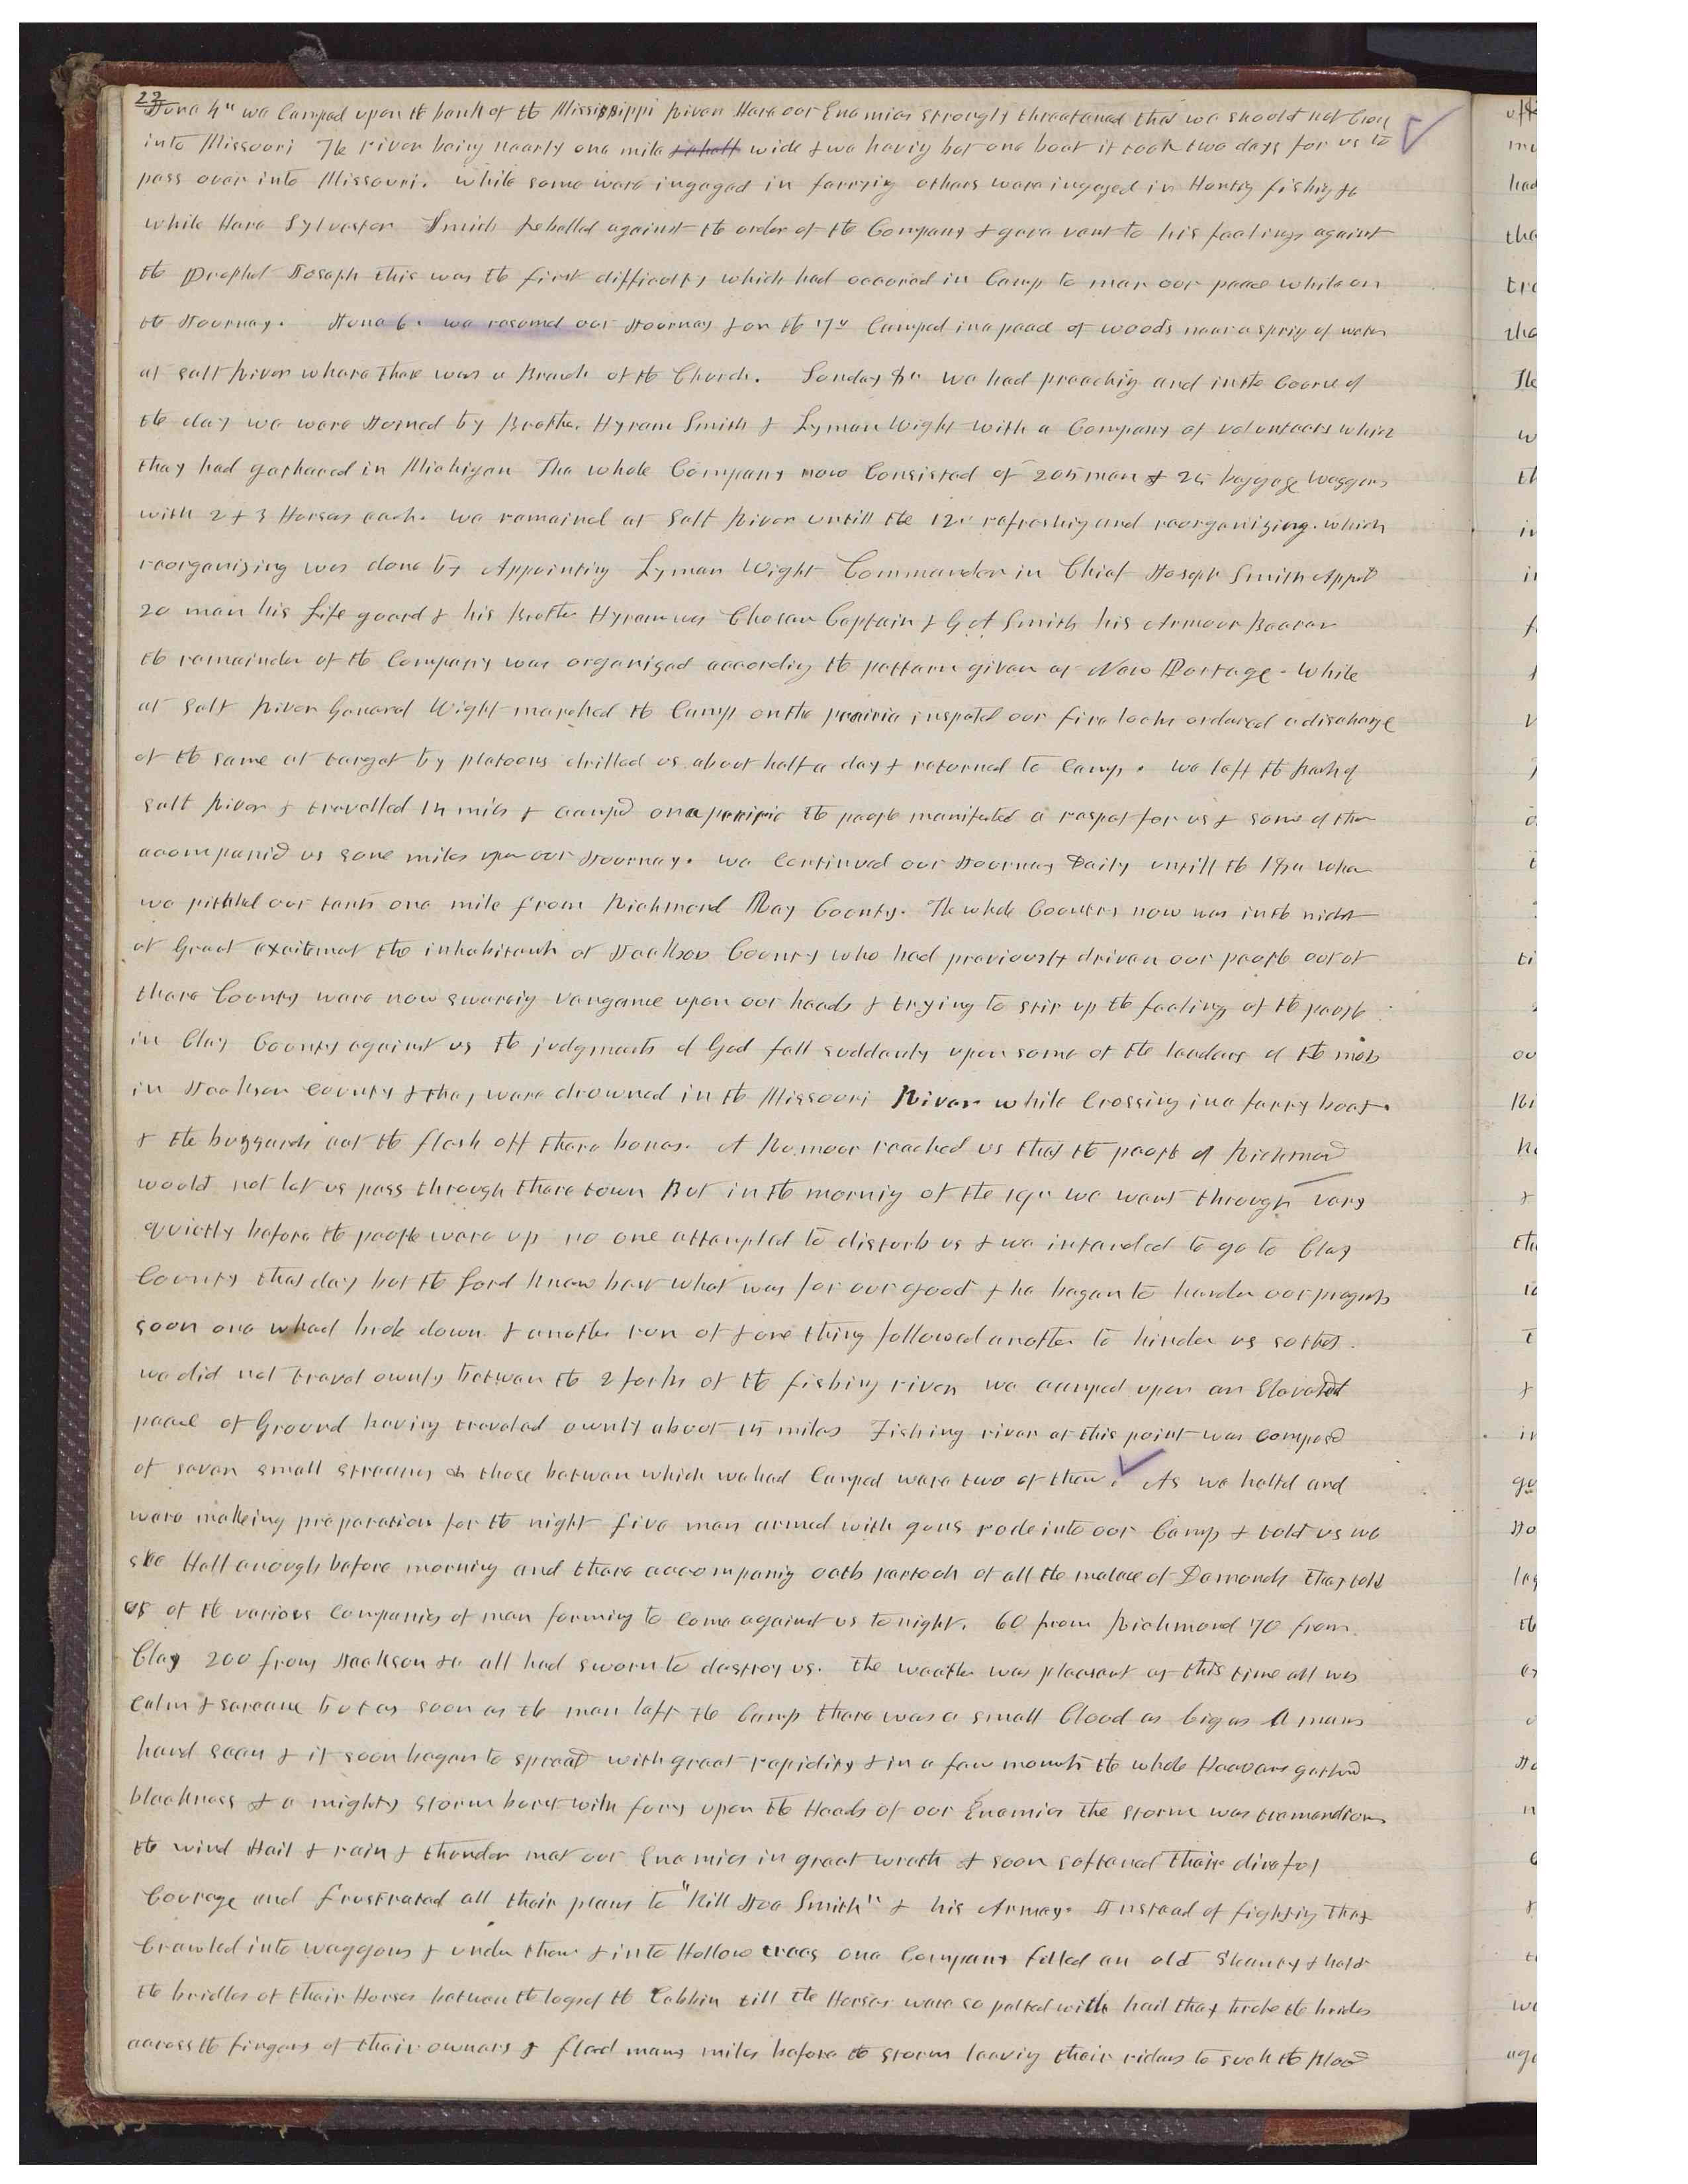 22
June 4" we Camped upon the bank of the Mississippi River Here our Enemies strongly threatened that we should not Cross
into Missouri The river being nearly one mile & a half wide & we having but one boat it took two days for us to
pass over into Missouri. while some were ingaged in ferrying others were ingaged in Hunting fishing &c
while Here Sylvester Smith Rebelled against the order of the Company & gave vent to his feelings against
the Prophet Joseph this was the first difficulty which had occored in Camp to mar our peace while on
the Journey. June 6. we resumed our Journey & on the 7" Camped in a peace of woods near a spring of water
at Salt River where there was a Branch of the Church. Sunday 8" we had preaching and in the Course of
the day we were Joined by Brother Hyram Smith & Lyman Wight with a Company of volunteers which
they had gathered in Michigan The whole Company now Consisted of 205 men & 25 baggage waggons
with 2 & 3 Horses each. we remained at Salt River untill the 12" refreshing and reorganizing. which
reorganizing was done by Appointing Lyman Wight Commander in Chief Joseph Smith Appd
20 men his Life guard & his Brother Hyram was Chosen Captain & G A Smith his Armour Bearer
the remainder of the Company was organized according the pattern given at New Portage. While
at Salt River General Wight marched the Camp on the prairie inspeted our fire locks ordered a discharge
of the same at target by platoons drilled us about half a day & returned to Camp. we left the bank of
Salt River & travelled 14 mils & campd on a prairie the people manifested a respet for us & some of them
accompanid us some miles upon our Journey. we Continued our Journey Daily untill the 18" when
we pitched our tents one mile from Richmond Ray County. The whole Country now was in the midst
of Great excitemet the inhabitants of Jackson County who had previously driven our people out of
there County were now swareing vengance upon our heads & trying to stir up the feelings of the people
in Clay County against us the judgments of God fell suddenly upon some of the leaders of the mob
in Jackson County & they were drowned in the Missouri River while Crossing in a ferry boat.
& the buzzards eat the flesh off there bones. A Rumoor reached us that the people of Richmond
would not let us pass through there town But in the mornig of the 19" we went through very
quietly before the people were up no one attempted to disturb us & we intended to go to Clay
County that day but the Lord knew best what was for our good & he began to hander our progress
soon one wheel broke down & another run of & one thing followed another to hinder us so that
we did not travel ownly betwen the 2 forks of the fishing river we camped upon an Elevated
peace of Ground having traveled ownly about 15 miles Fishing river at this point was composed
of seven small streams & those betwen which we had Camped were two of them. As we halted and
were makeing preparation for the night five men armed with guns rode into our Camp & told us we
see Hell enough before morning and there accompanig oaths partook of all the malace of Demonds They told
us of the various Companies of men forming to Come against us to night. 60 from Richmond 70 from
Clay 200 from Jackson &c all had sworn to destroy us. The weather was pleasant at this time all was
Calm & sareane but as soon as the men left the Camp there was a small Cloud as big as A mans
hand seen & it soon began to spread with great rapidity & in a few moments the whole Heavens gatherd
blackness & a mighty storm burst with fury upon the Heads of our Enemies The storm was tremendious
the wind Hail & rain & thunder met our Enemies in great wrath & soon softened their direful
Courage and frustrated all their plans to "Kill Joe Smith" & his Armey. Instead of fighting They
Crawled into waggons & under them & into Hollow trees one Company filled an old Shanty & held
the bridles of their Horses between the logs of the Cabbin till the Horses were so pelted with hail they broke the brides
across the fingers of their owners & flead many miles before the storm leaving their riders to suck the Blood